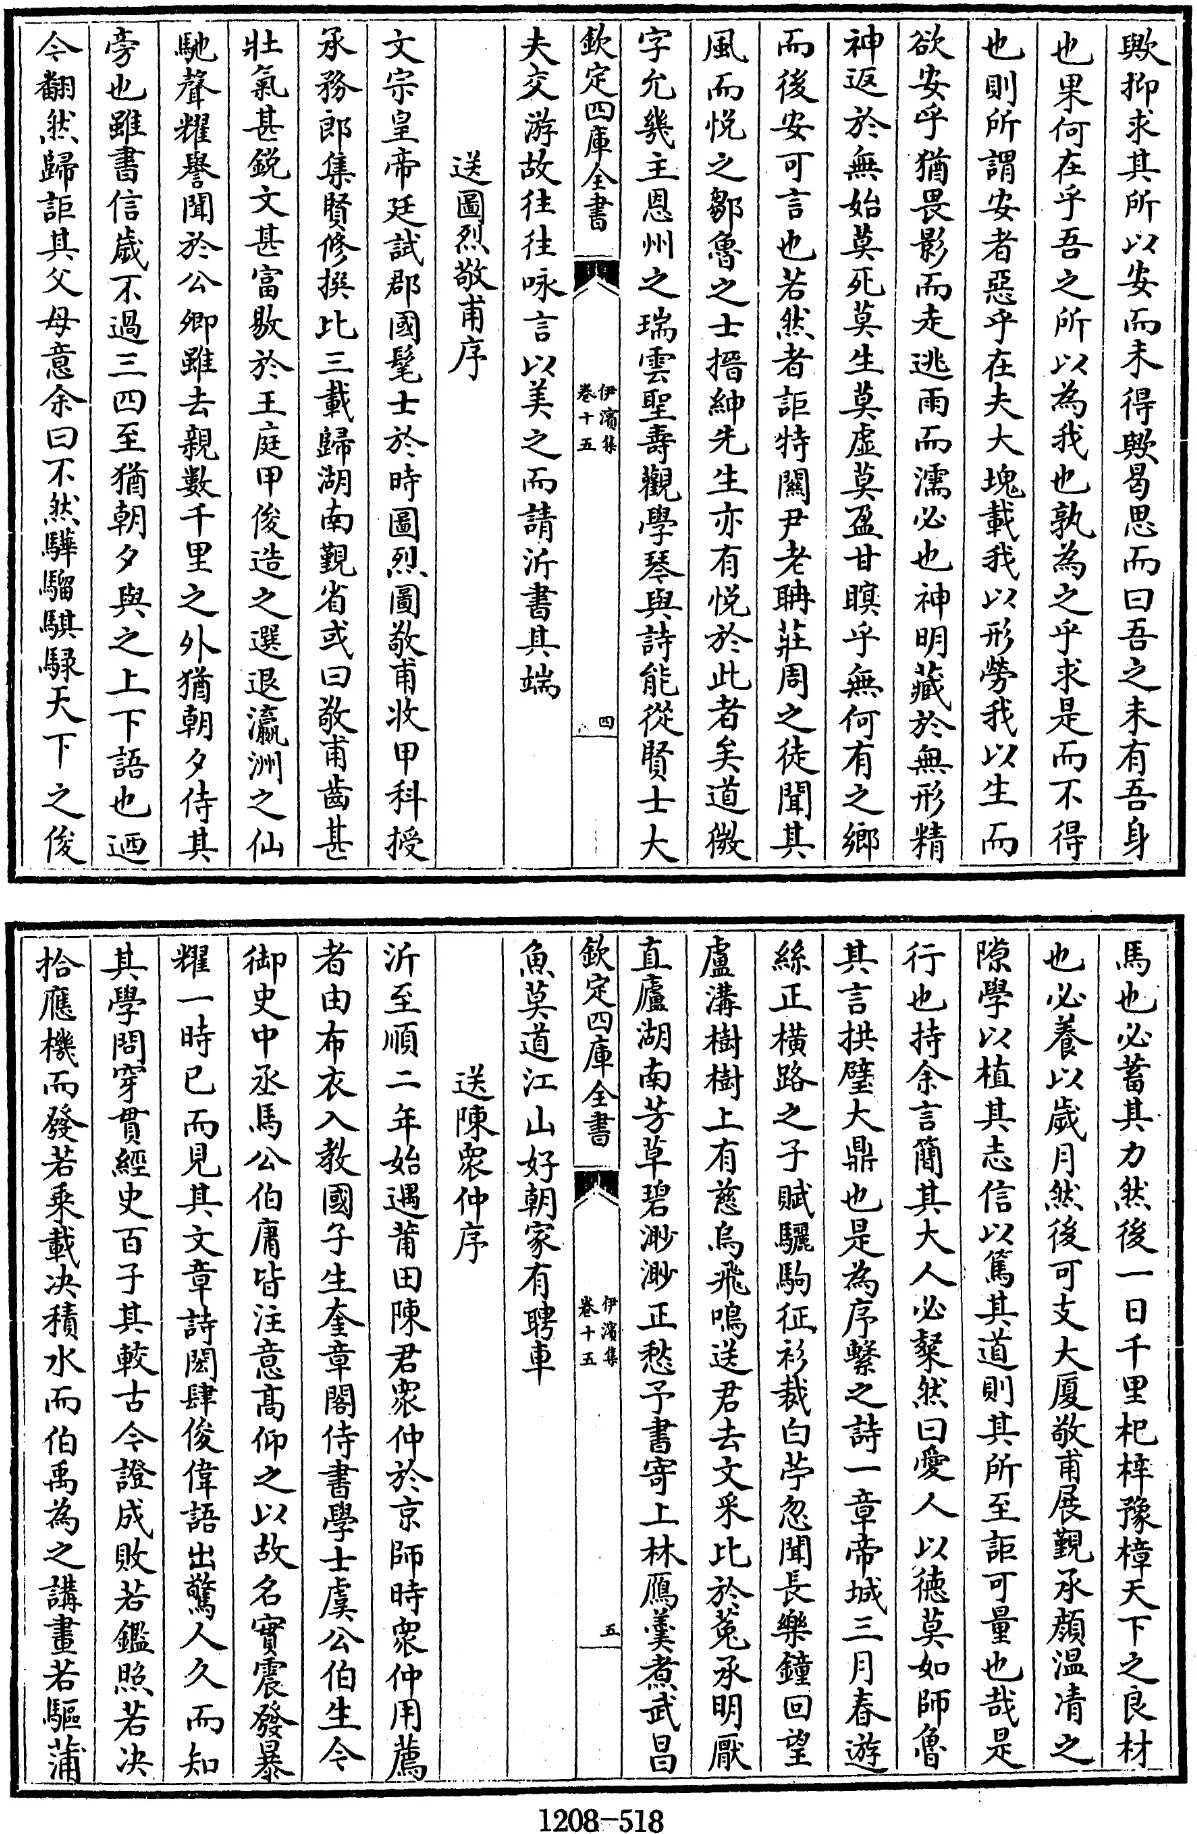 歟抑求其所以安而未得歟曷思而曰吾之未有吾身
也果何在乎吾之所以為我也孰為之乎求是而不得
也則所謂安者惡乎在夫大塊載我以形勞我以生而
欲安乎猶畏影而走逃雨而濡必也神明藏於無形精
神返於無始莫死莫生莫虛莫盈甘瞑乎無何有之鄉
而後安可言也若然者詎特關尹老聃莊周之徒聞其
風而悅之鄒魯之士搢紳先生亦有悅於此者矣道微
字允幾主恩州之瑞雲聖壽觀學琴與詩能從賢士大
欽定四庫全書
伊濱集
卷十五
四
夫交游故往往咏言以美之而請沂書其端
送圖烈敬甫序
文宗皇帝廷試郡國髦士於時圖烈圖敬甫收甲科授
承務郎集賢修撰比三載歸湖南覲省或曰敬甫齒甚
壯氣甚銳文甚富敭於王庭甲俊造之選退瀛洲之仙
馳聲耀譽聞於公卿雖去親數千里之外猶朝夕侍其
旁也雖書信歲不過三四至猶朝夕與之上下語也迺
今翻然歸詎其父母意余曰不然驊騮騏騄天下之俊
馬也必蓄其力然後一日千里杞梓豫樟天下之良材
也必養以歲月然後可支大厦敬甫展覲承顔温凊之
隙學以植其志信以篤其道則其所至詎可量也哉是
行也持余言簡其大人必粲然曰愛人以德莫如師魯
其言拱璧大鼎也是為序繫之詩一章帝城三月春遊
絲正橫路之子賦驪駒征衫裁白苧忽聞長樂鐘回望
盧溝樹樹上有慈烏飛鳴送君去文采比於菟承明厭
直廬湖南芳草碧渺渺正愁予書寄上林鴈羮煮武昌
欽定四庫全書
伊濱集
卷十五
五
魚莫道江山好朝家有聘車
送陳衆仲序
沂至順二年始遇莆田陳君衆仲於京師時衆仲用薦
者由布衣入教國子生奎章閣侍書學士虞公伯生今
御史中丞馬公伯庸皆注意高仰之以故名實震發暴
耀一時已而見其文章詩閎肆俊偉語出驚人久而知
其學問穿貫經史百子其較古今證成敗若鑑照若决
拾應機而發若乘載决積水而伯禹為之講畫若驅蒲
1208-518